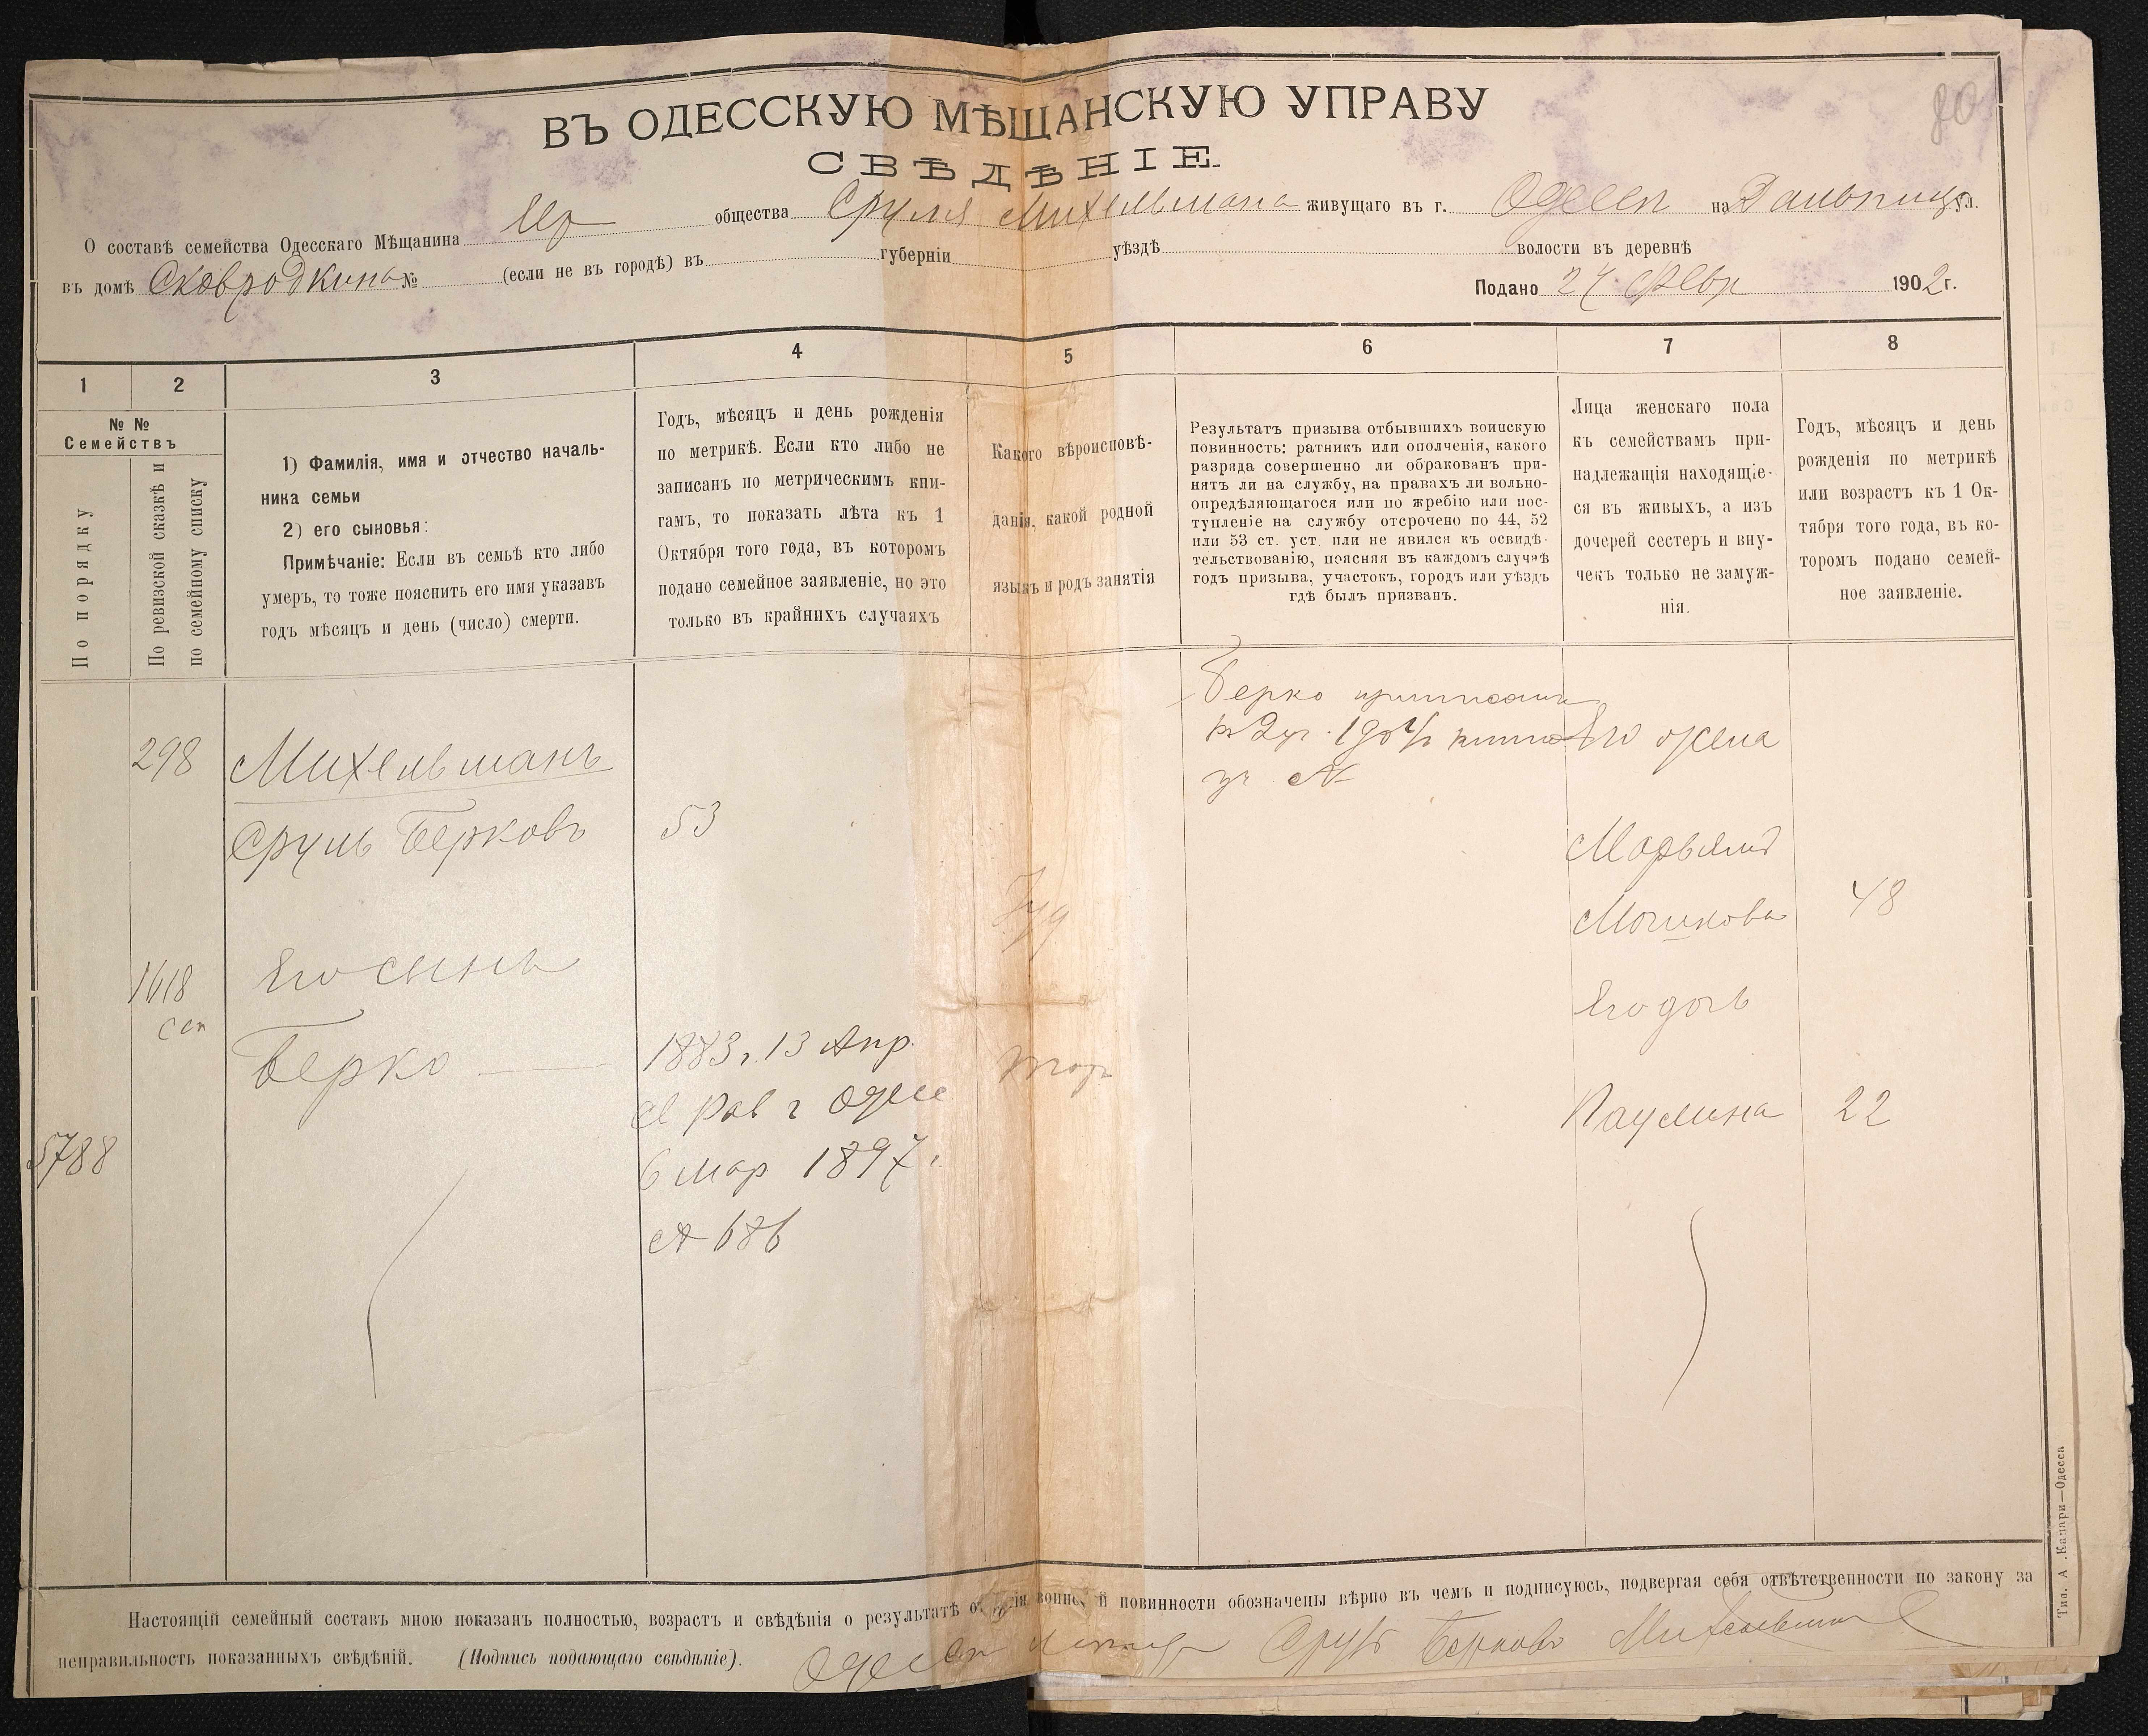 80
ВЪ ОДЕССКУЮ МѢЩАНСКУЮ УПРАВУ
СВѢДѢНІЕ.
О составѣ семейства Одесскаго Мѣщанина Ир общества Сруля Михельмана живущаго въ г. Одессѣ на Дальницк ул.
въ домѣ Сковродкина № (если не въ городѣ) въ губерніи уѣздѣ волости въ деревнѣ
Подано 27 Февр 1902 г.
1 2 3 4 5 6 7 8
№ №
Семействъ
По порядку
По ревизской сказкѣ и
по семейному списку
1) Фамилія, имя и отчество началь-
ника семьи
2) его сыновья:
Примѣчаніе: Если въ семьѣ кто либо
умеръ, то тоже пояснить его имя указавъ
годъ мѣсяцъ и день (число) смерти.
Годъ, мѣсяцъ и день рожденія
по метрикѣ. Если кто либо не
записанъ по метрическимъ кни-
гамъ, то показать лѣта къ 1
Октября того года, въ которомъ
подано семейное заявленіе, но это
только въ крайнихъ случаяхъ
Какого вѣроисповѣ-
данія, какой родной
языкъ и родъ занятія
Результатъ призыва отбывшихъ воинскую
повинность: ратникъ или ополченія, какого
разряда совершенно ли обракованъ при-
нятъ ли на службу, на правахъ ли вольно-
опредѣляющагося или по жребію или пос-
тупленіе на службу отсрочено по 44, 52
или 53 ст. уст. или не явился къ освидѣ-
тельствованію, поясняя въ каждомъ случаѣ
годъ призыва, участокъ, городъ или уѣздъ
гдѣ былъ призванъ.
Лица женскаго пола
къ семействамъ при-
надлежащія находящіе-
ся въ живыхъ, а изъ
дочерей сестеръ и вну-
чекъ только не замуж-
нія.
Годъ, мѣсяцъ и день
рожденія по метрикѣ
или возрастъ къ 1 Ок-
тября того года, въ ко-
торомъ подано семей-
ное заявленіе.
298
Михельманъ
Сруль Берковъ
53
Берко приписанъ
къ 2 уч.
Его жена
Марьямъ
Мошкова
48
Іуд
1618
Его сынъ
Берко
1883 г. 13 Апр.
Рав г Одесс
6 Мар 1897 г.
№ 686
Торг
Его дочь
Паулина
22
5788
Настоящій семейный составъ мною показанъ полностью, возрастъ и свѣдѣнія о результатѣ воинской повинности обозначены вѣрно въ чемъ и подписуюсь, подвергая себя отвѣтственности по закону за
неправильность показанныхъ свѣдѣній. (Подпись подающаго свѣдѣніе). Одесск Сруль Берковъ Михельман
Тип. А. Капари—Одесса